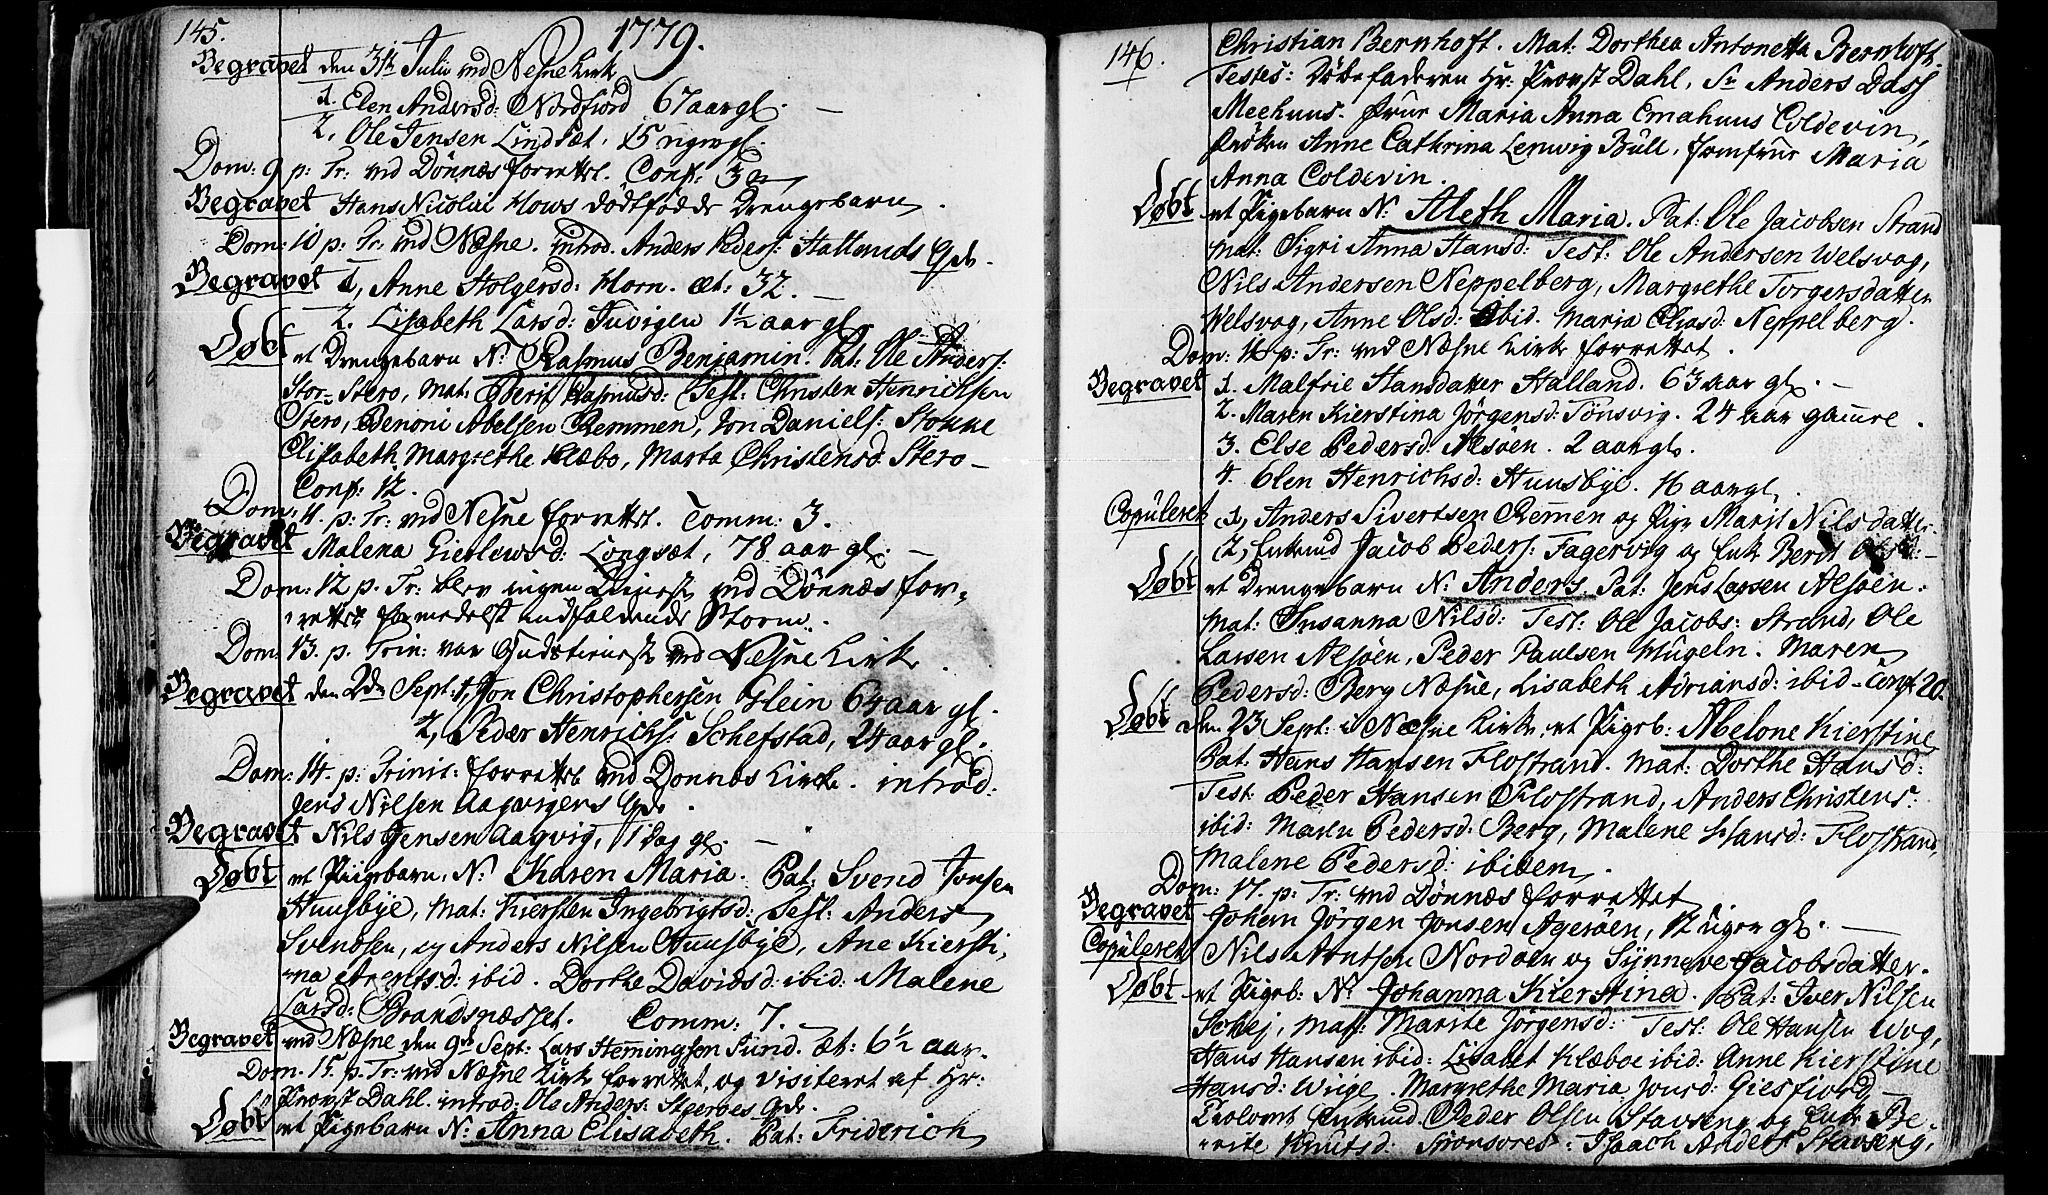 145.
1779.
Begravet den 31te Julii ved Nesne Kirke
1. Elen Andersd: Nordfiord 67 aar gl. —
2, Ole Jensen Lindsæt, 15 ugergl.
Dom: 9 p: Tr: ved Dönnæs forrettet. Conf: 32
Begravet Hans Nicolai Hows dödfödde Drengebarn.
Dom: 10 p: Tr: ved Næsne. introd. Anders Peders: Hallands Qde.
Begravet 1, Anne Holgersd: Horn. æt: 32. —
2. Lisabeth Larsd: Tuvigen 1½ aar gl
Døbt et Drengebarn N: Rasmus Benjamin. Pat: Ole Anders:
Stor-Stero, mat: Berit Rasmusd: Test: Christen Henrichsen
Stero, Benoni Abelsen Remmen, Jon Daniels: Stokke
Elisabeth Margrethe Klæbo, Marta Christensd: Stero —
Conf: 12.
Dom: 11. p: Tr: ved Nesne forrettet. Comm: 3.
Begravet Malena Gielewsd: Longsæt, 78 aar gl: —
Dom: 12 p. Tr: blev ingen Tieneste ved Dönnæs for-
rettet formedelst indfaldende Storm.
Dom: 13. p. Trin: var Gudstieneste ved Næsne Kirke.
Begravet den 2den Sept: 1, Jon Christophersen Hlein 64 aar gl.
2, Peder Henrichs: Schefstad, 24 aar gl.
Dom: 14. p: Trinit: forrettet ved Dönnæs Kirke. introd:
Jens Nilsen Aagvigens Qde.
Begravet Nils Jensen Aagvig, 1 Dag gl. —
Døbt et Piigebarn, N: Karen Maria. Pat: Svend Jonsen
Huusbye, mat: Kiersten Ingebrigtsd: Test: Anders
Svendsen, og Anders Nilsen Huusbye, Ane Kiersti-
na Arentsd: ibid. Dorthe Davidsd: ibid: Malene
Larsd: Brandsnæsset. Comm: 7. —
Begravet ved Næsne den 9de Sept: Lars Hemingsen Sund. æt: 6½ aar.
Dom. 15. p. Tr: ved Næsne Kirke forrettet, og visiteret af Hr:
Provst Dahl. introd: Ole Anders: Qde.
Døbt et Pigebarn N: Anna Elisabeth. Pat: Friderich
146.
Christian Bernhoft. Mat: Dorthea Antonetta Bernhoft.
Testes: Døbefaderen Hr: Provst Dahl, Sr Anders Dass
Meehuus. Frue Maria Anna Emahuus Coldevin,
Frøken Anne Cathrina Lerwig Büll, Jomfrue Maria
Anna Coldevin.
Døbt et Pigebarn N: Aleth Maria. Pat: Ole Jacobsen Strand
mat: Sigri Anna Hansd: Test: Ole Andersen Welsvog,
Nils Andersen Neppelberg, Margrethe Torgersdatter
Welsvog, Anne Olsd: ibid. Maria Eliasd: Neppelberg.
Dom: 16 p: Tr: ved Næsne Kirke forrettet.
Begravet 1. Malfrie Hansdatter Halland. 63 aar gl. —
2. Maren Kierstina Jörgensd: Tönsvig. 24 aar gamre.
3. Else Pedersd: Alsöen. 2 aar gl.
4. Elen Henrichsd: Huusbye. 16 aar gl.
Copuleret 1, Anders Sivertsen Remen og Pige Marit Nilsdatter
2, Enkemd Jacob Peders: Fagervig og Enke Berit Olsd: —
Døbt et Drengebarn N: Anders. Pat: Jens Larsen Alsöen.
mat: Susanna Nilsd: Test: Ole Jacobs: Strand, Ole
Larsen Alsöen, Peder Paulsen Hugeln. Maren
Pedersd: Berg Næsne, Lisabeth Adriansd: ibid - Conf: 20.
Døbt den 23 Sept: i Næsne Kirke et Pigeb: Abelone Kierstine
Pat: Hans Hansen Flostrand. Mat: Dorthe Hansd:
Test: Peder Hansen Flostrand, Anders Christens:
ibid: Maren Pedersd: Berg, Malene Hansd: Flostrand,
Malene Pedersd: ibidem.
Dom: 17. p: Tr: ved Dönnæs forrettet
Begravet Johan Jörgen Jonsen Ageröen, 12 uger gl. —
Copuleret Nils Arntsen Nordöen og Synneve Jacobsdatter.
Døbt et Pigeb: N: Johanna Kierstina. Pat: Iver Nilsen
Schej, mat: Marite Jörgensd: Test: Ole Hansen Wog,
Hans Hansen ibid: Lisabet Klæboe ibid: Anne Kierstine
Hansd: Wiige. Margrethe Maria Jonsd: Giesfiord
Trolovet Enkemd Peder Olsen Stavseng og Enke Be-
rite Knutsd: Sponsores: Isaach Anders: Stavseng,